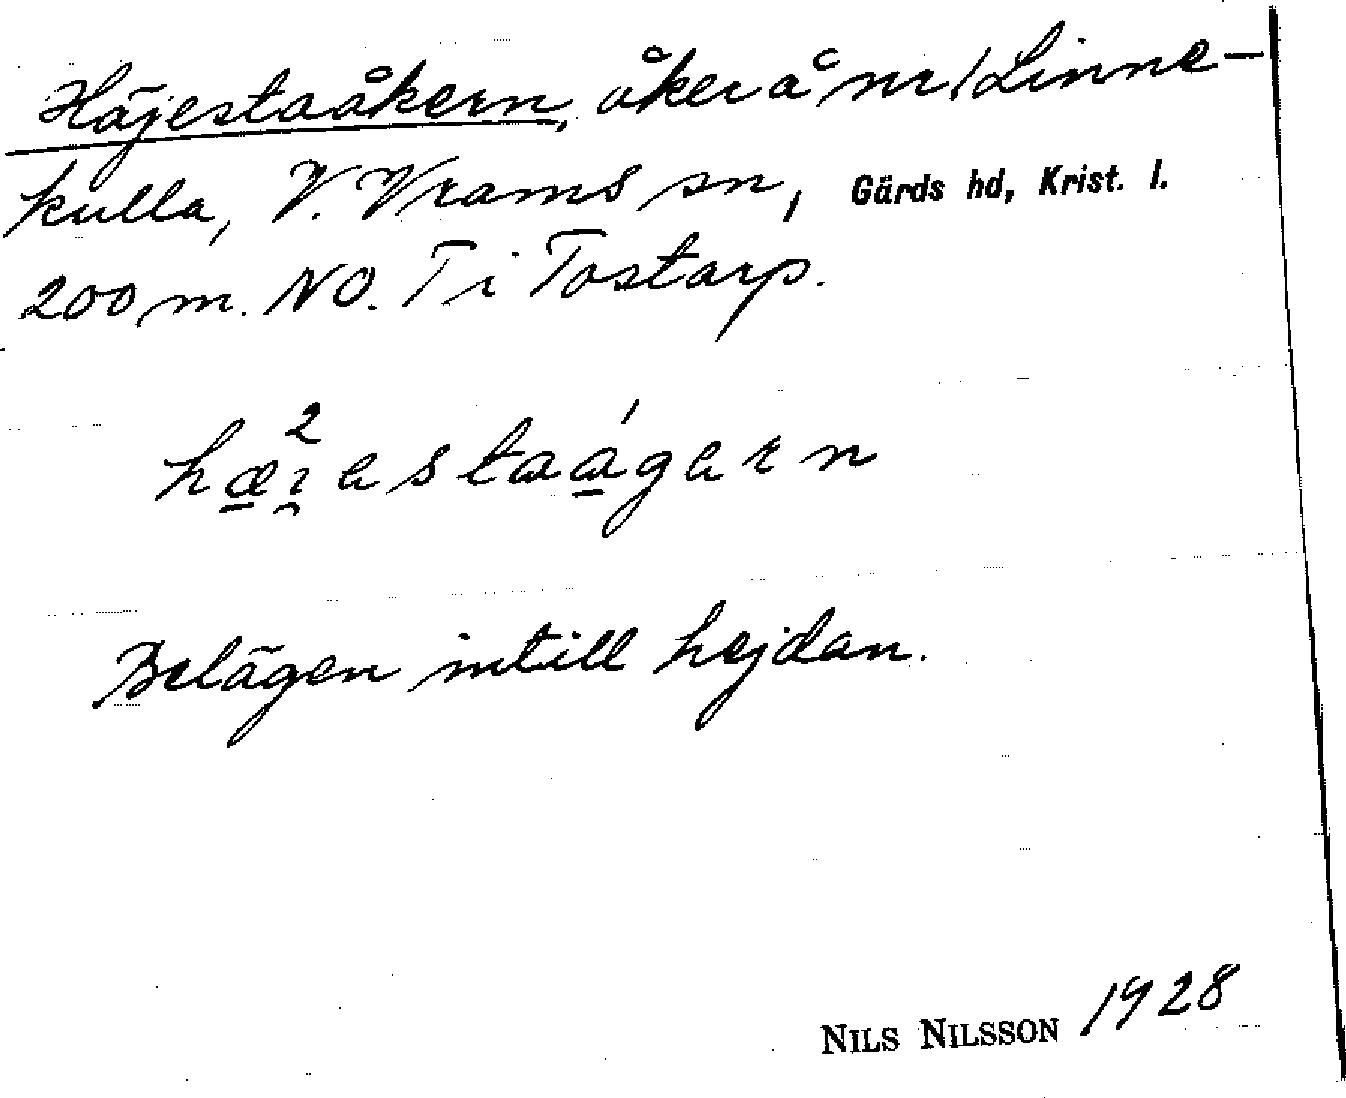 Häjestaåkern, åker å nr 1 Linne-
kulla, V. Vrams sn, Gärds hd, Krist. l.
200 m. NO. T i Tostarp.
Belägen intill hejdan.
NILS NILSSON 1928